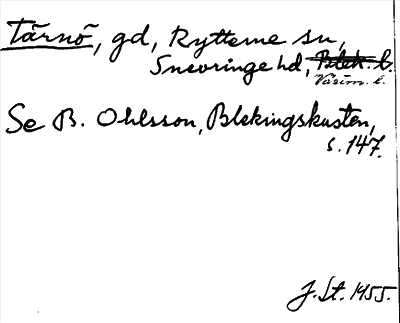 Tärnö, gd, Rytterne sn,
Snevringe hd, Blek. l.
Väsm. l.
Se B. Ohlsson, Blekingskusten,
s. 147.
J. St. 1955.